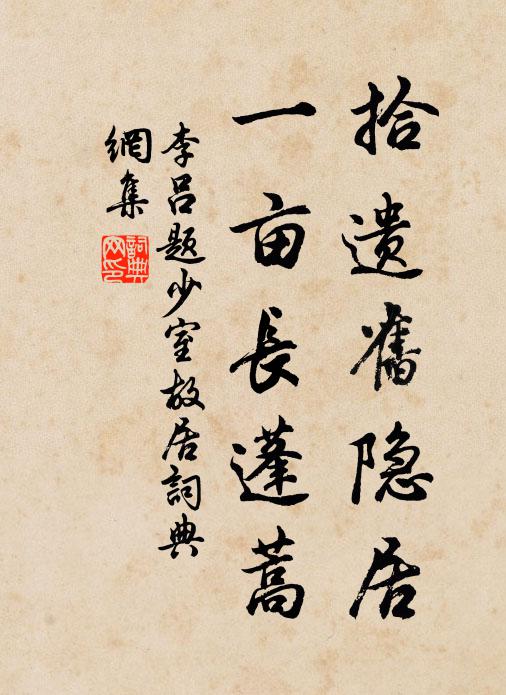 拾遗舊隐居
一亩長蓬蒿
李呂题少室故居詞典
網集
詞典
网印